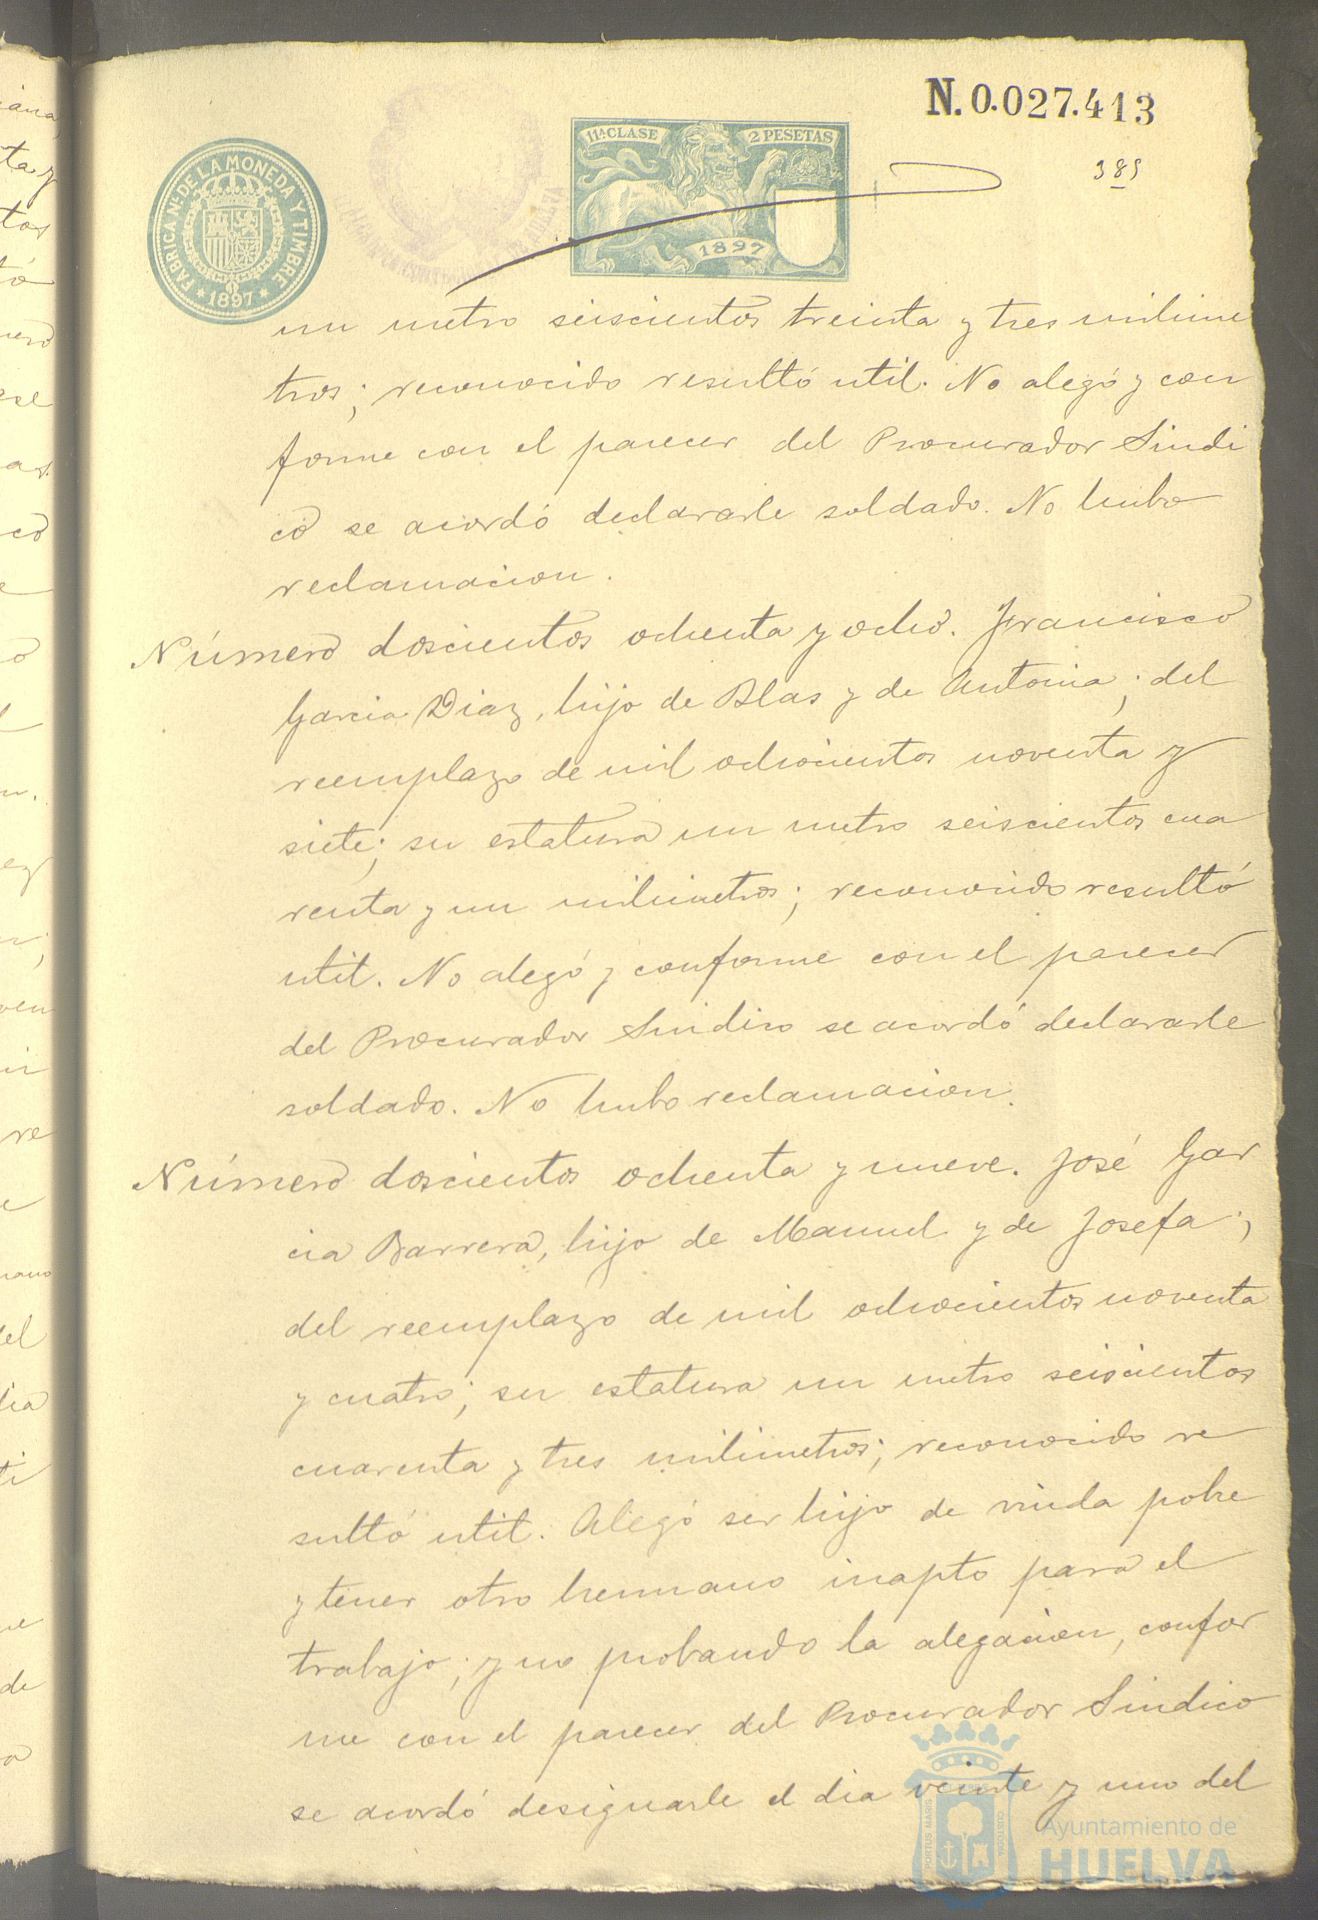 N. 0.027.413
389
11ª CLASE 2 PESETAS
1897
FÁBRICA Nl. DE LA MONEDA Y TIMBRE
* 1897 *
un metro seiscientos treinta y tres milime
tros; reconocido resultó util. No alegó y con
forme con el parecer del Procurador Sindi
co se acordó declararle soldado. No hubo
reclamacion.
Número doscientos ochenta y ocho. Francisco
Garcia Diaz, hijo de Blas y de Antonia; del
reemplazo de mil ochocientos noventa y
siete; su estatura un metro seiscientos cua
renta y un milimetros; reconocido resultó
util. No alegó y conforme con el parecer
del Procurador Sindico se acordó declararle
soldado. No hubo reclamacion.
Número doscientos ochenta y nueve. José Gar
cia Barrera, hijo de Manuel y de Josefa;
del reemplazo de mil ochocientos noventa
y cuatro; su estatura un metro seiscientos
cuarenta y tres milimetros; reconocido re
sultó util. Alegó ser hijo de viuda pobre
y tener otro hermano inapto para el
trabajo; y no probando la alegacion, confor
me con el parecer del Procurador Sindico
se acordó designarle el dia veinte y uno del
PORTUS MARIS
CUSTODIA
Ayuntamiento de
HUELVA